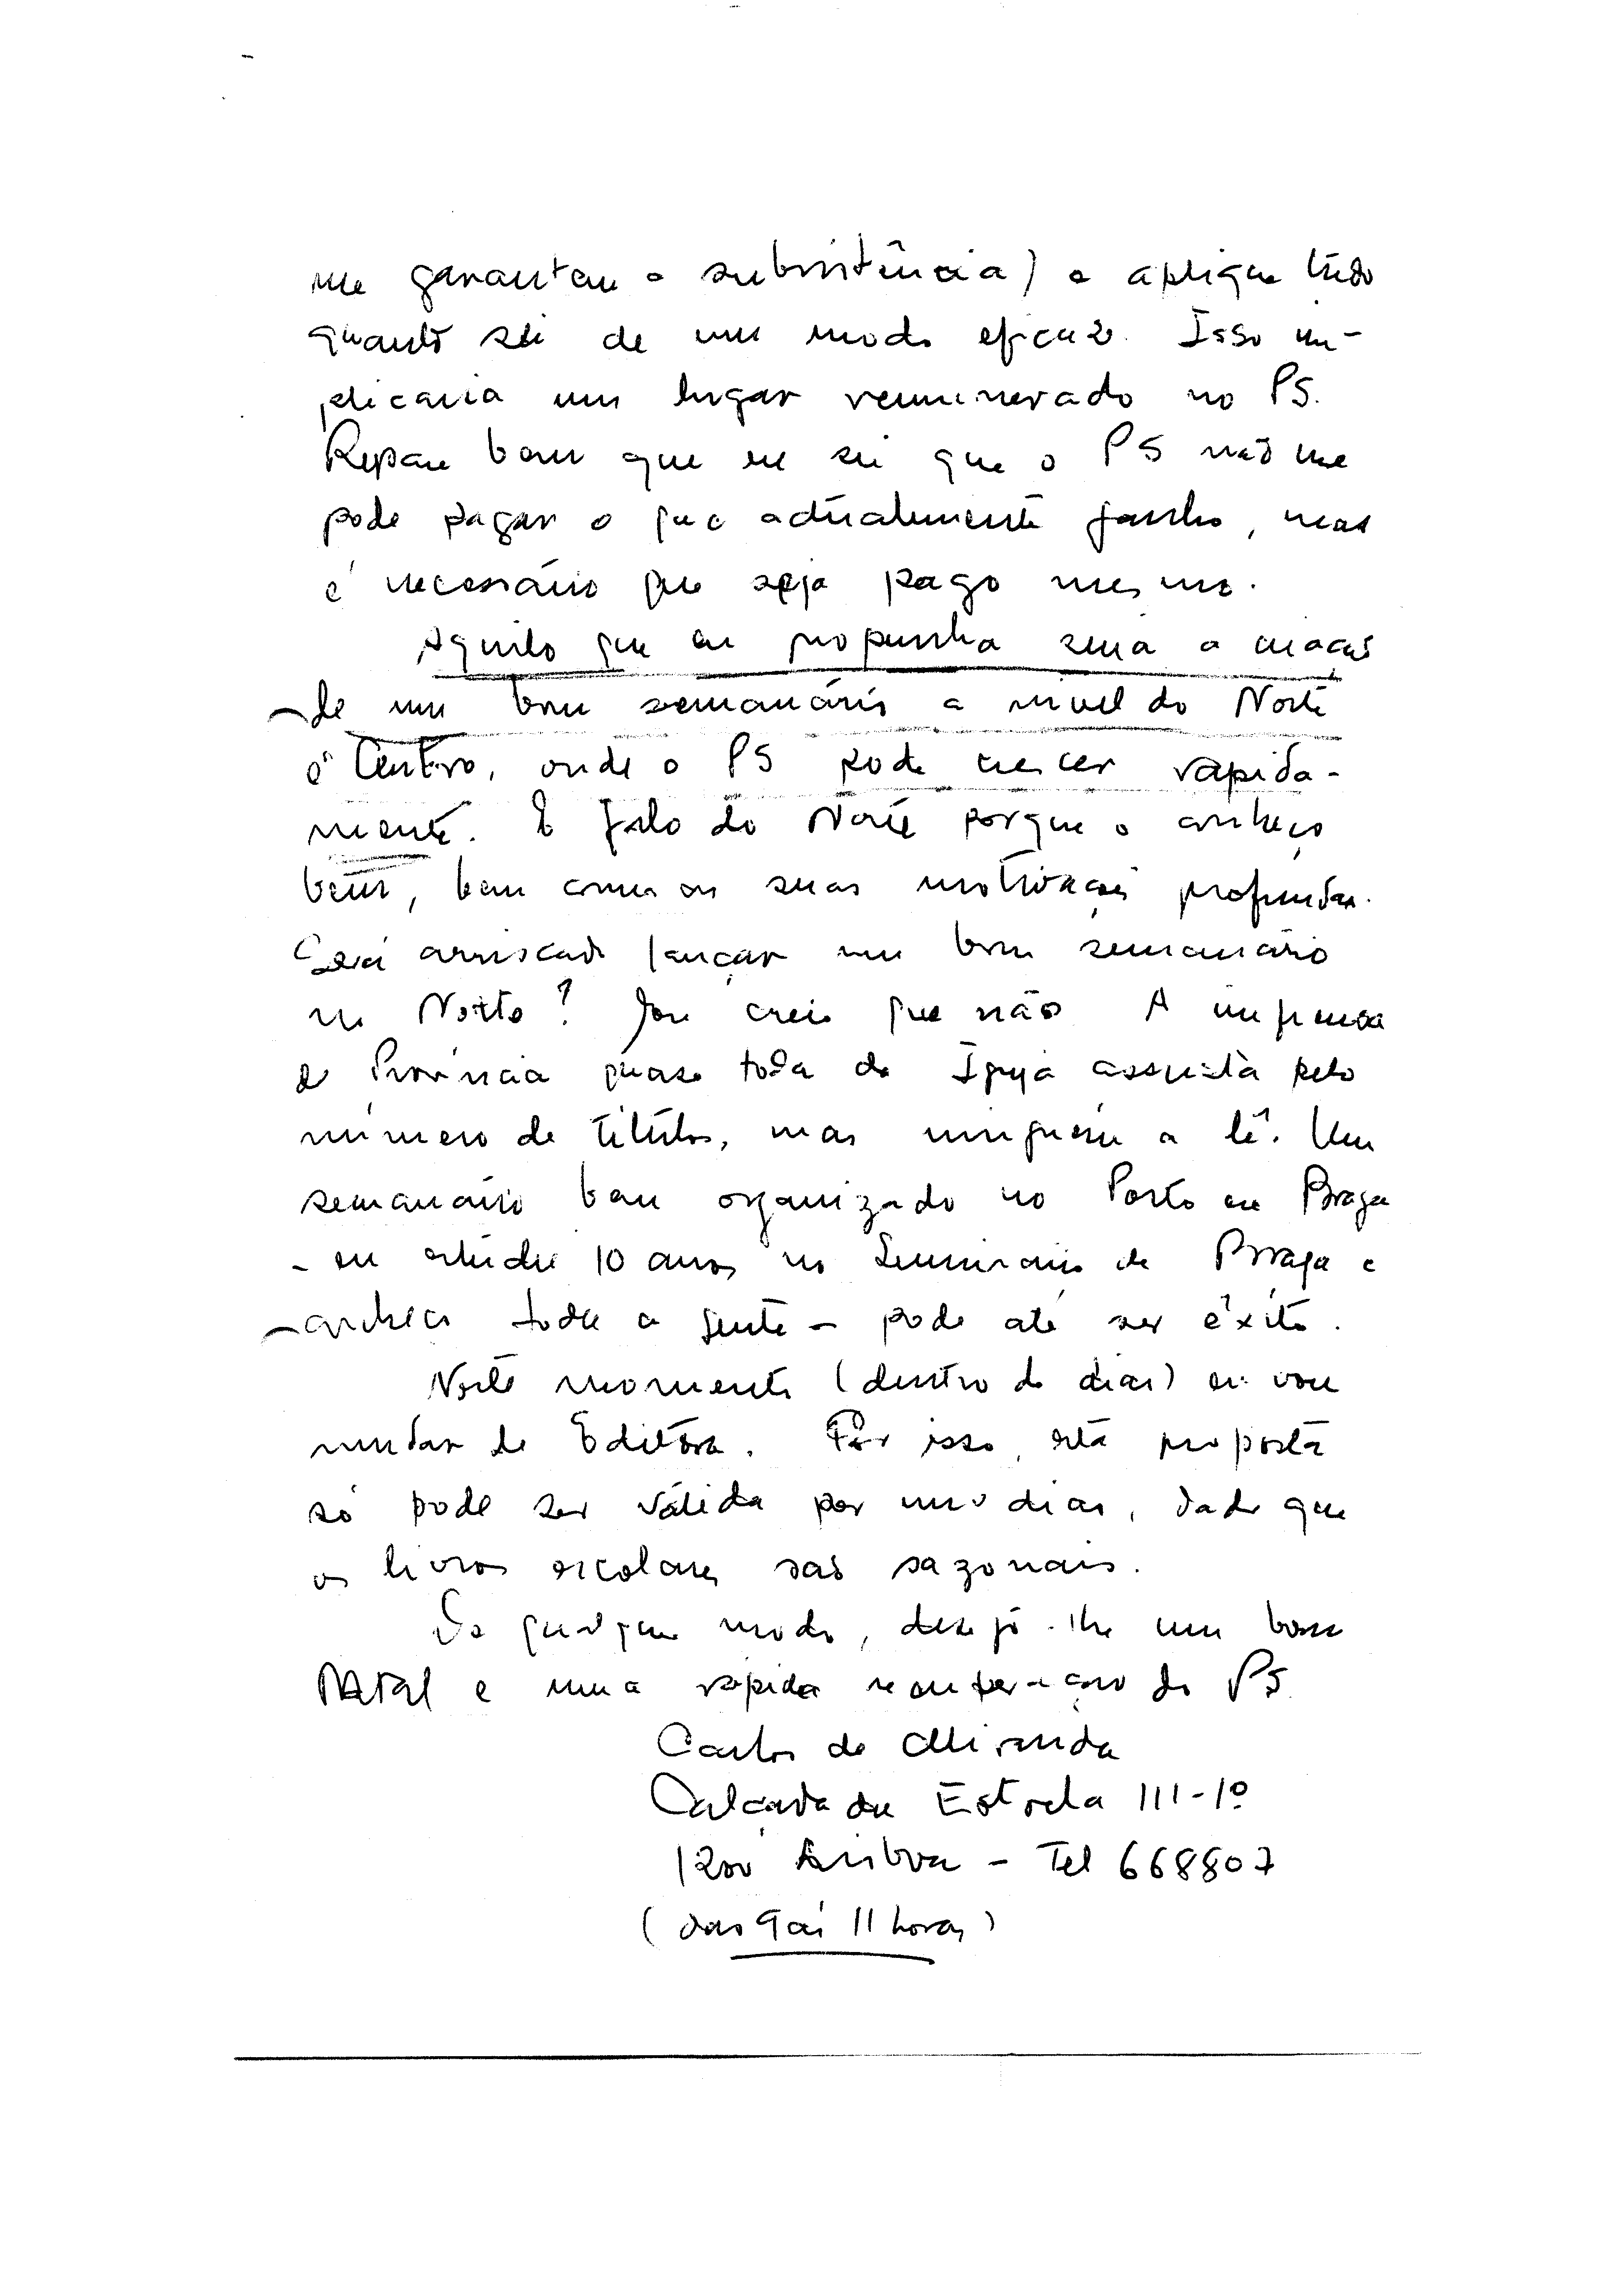 me garantem a subsistência) e aplique tudo
quanto sei de um modo eficaz. Isso im-
plicaria um lugar remunerado no PS.
Repare bem que eu sei que o PS não me
pode pagar o que actualmente ganho, mas
é necessário que seja pago mesmo.
Aquilo que eu propunha seria a criação
de um bom semanário a nível do Norte
e Centro, onde o PS pode crescer rapida-
mente. E falo do Norte porque o conheço
bem, bem como as suas motivações profundas.
Será arriscado lançar um bom semanário
no Norte? Eu creio que não. A imprensa
de Província quase toda da Igreja assusta pelo
número de títulos, mas ninguém a lê. Um
semanário bem organizado no Porto ou Braga
- eu estudei 10 anos no Seminário de Braga e
conheço toda a gente - pode até ser êxito.
Neste momento (dentro de dias) eu vou
mudar de Editora. Por isso, esta proposta
só pode ser válida por uns dias, dado que
os livros escolares são sazonais.
De qualquer modo, desejo-lhe um bom
Natal e uma rápida recuperação do PS
Carlos de Miranda
Calçada da Estrela 111-1º
1200 Lisboa - Tel 668807
(das 9 às 11 horas)